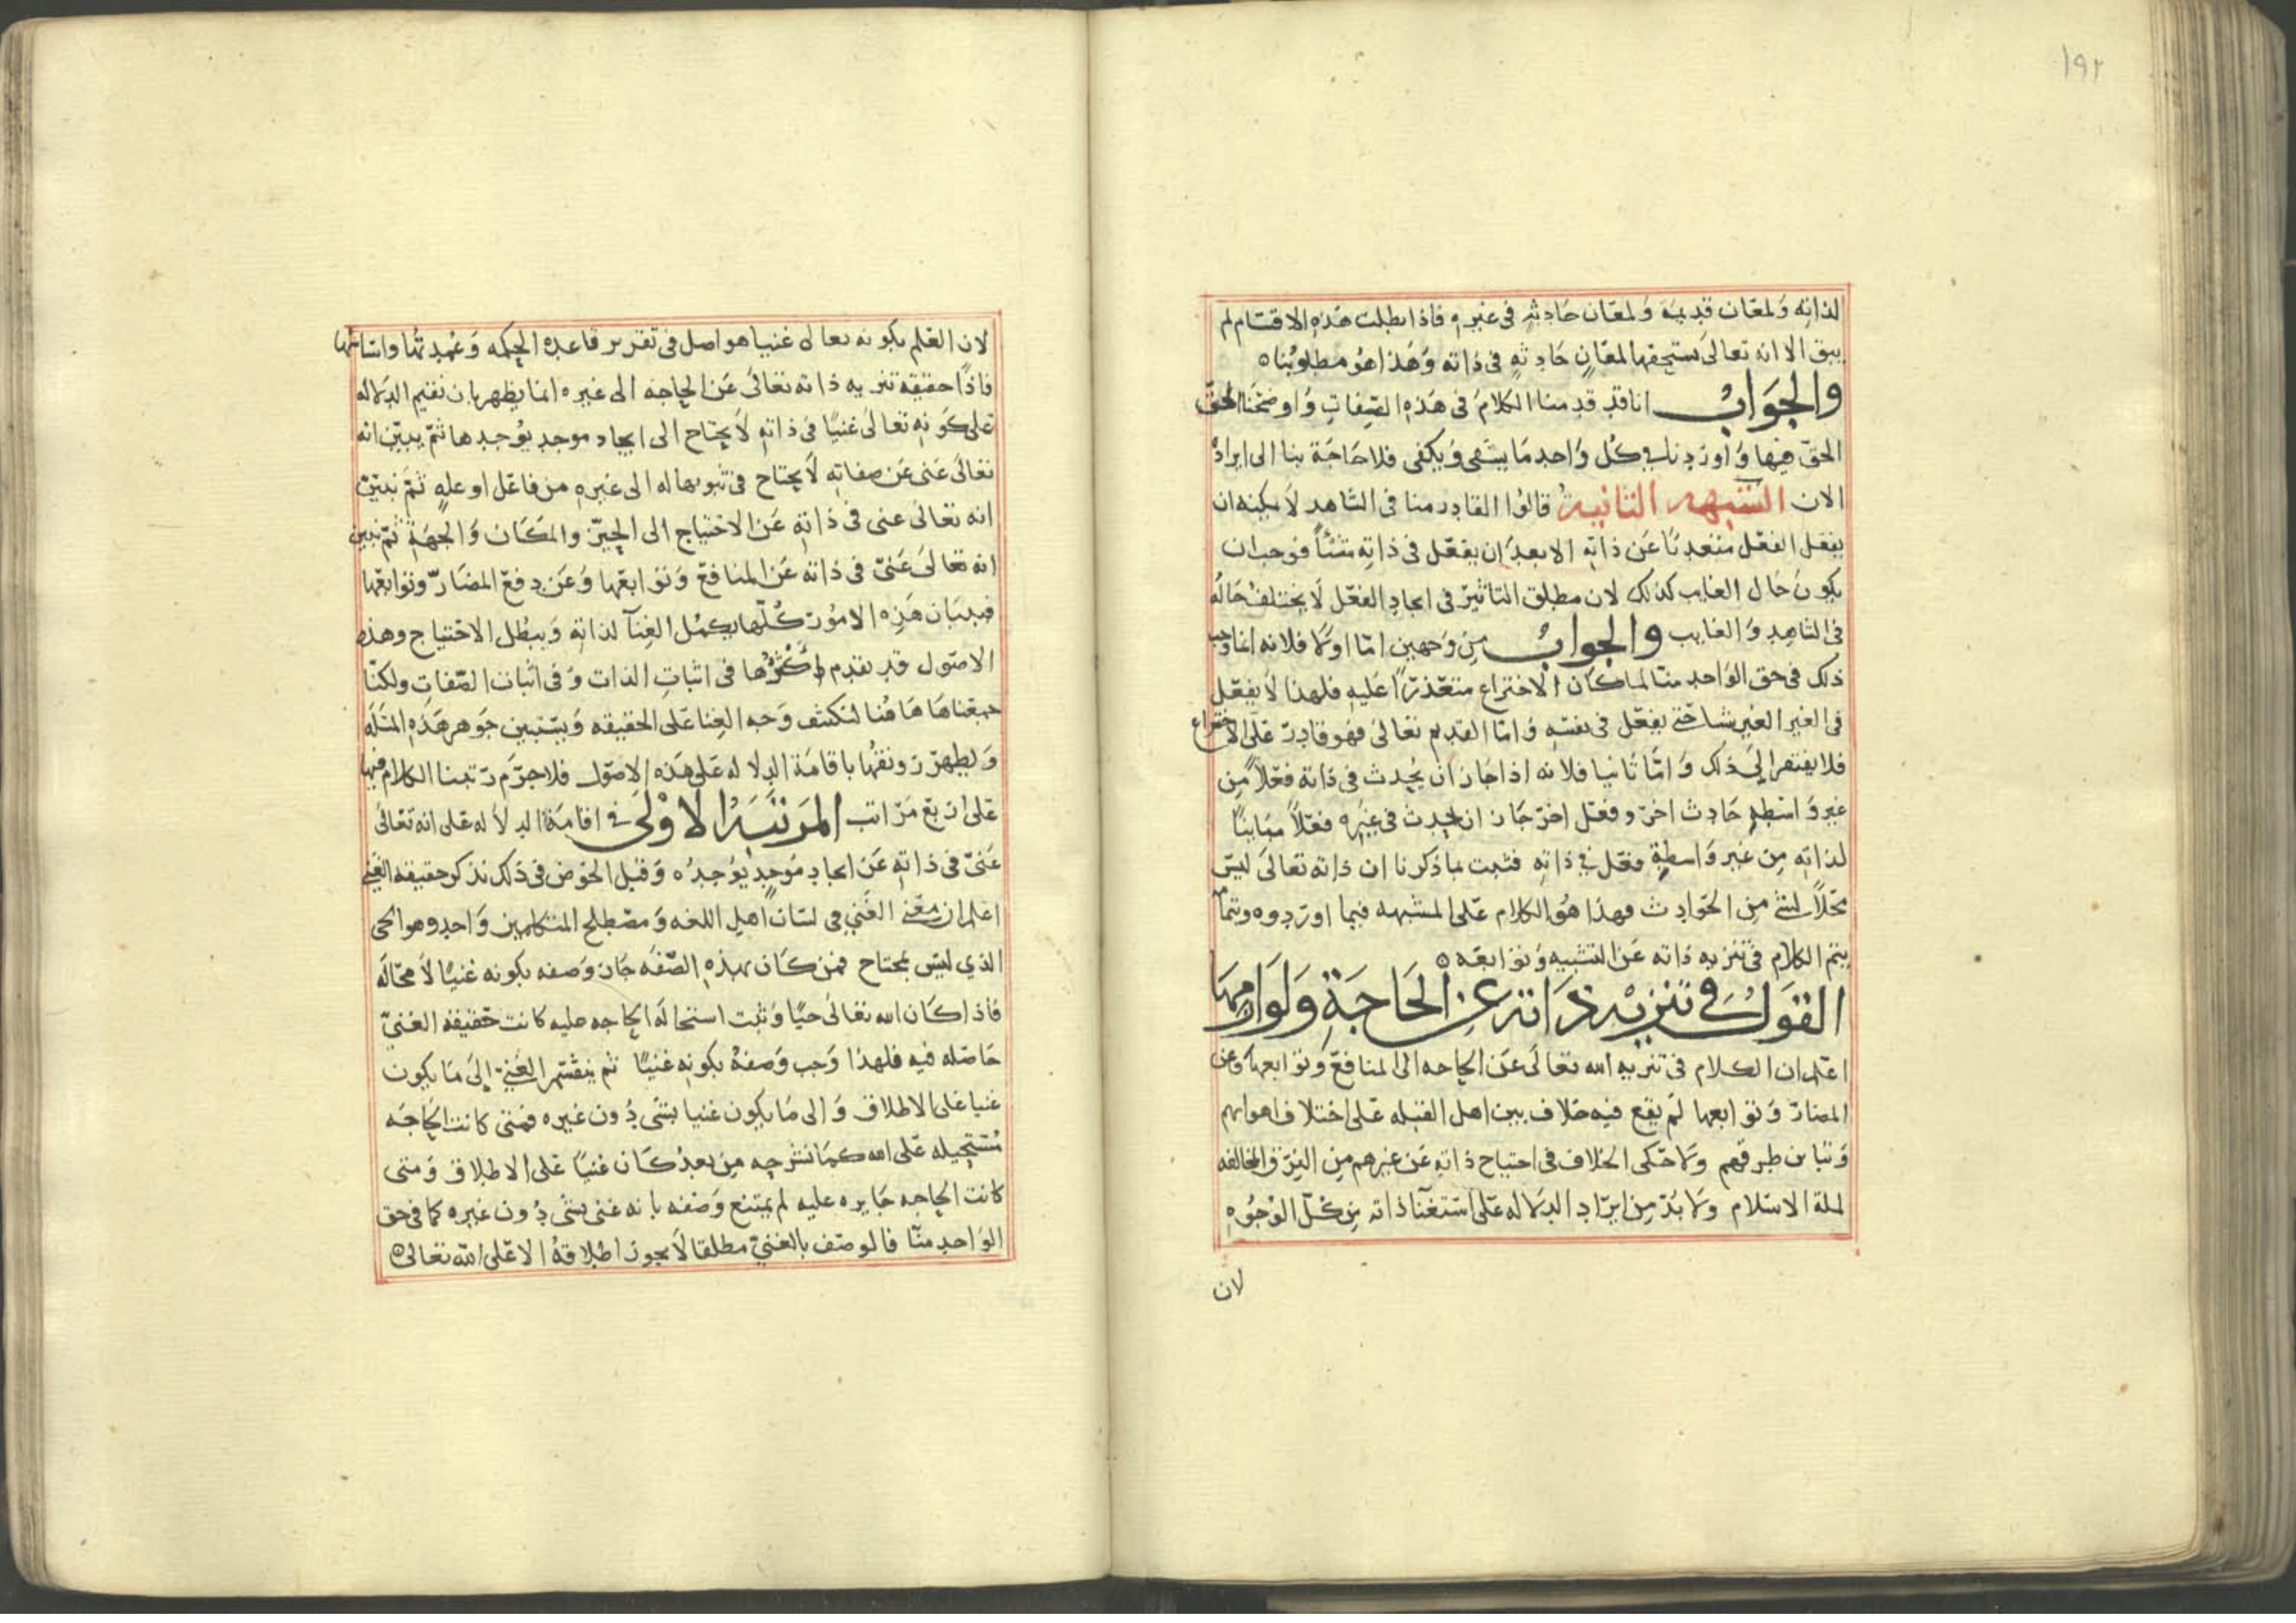 ١٩٢
لذاته ولمعان قديمة ولمعان حادثة في غيره فاذا بطلت هذه الاقسام لم
يبق الا انه تعالى يستحقها لمعان حادثه في ذاته وهذا هو مطلوبنا ه
والجواب انا قد قدمنا الكلام في هذه الصفات واوضحنا الحق
الحق فيها واوردنا في كل واحد ما يشفى ويكفى فلا حاجة بنا الى ايراده
الان الشبهه الثانية قالوا القادر منا في الشاهد لا يمكنه ان
يفعل الفعل متعديا عن ذاته الا بعد ان يفعل في ذاته شئا فوجب ان
يكون حال الغايب كذلك لان مطلق التاثير في ايجاد الفعل لا يختلف حاله
في الشاهد والغايب والجواب من وجهين اما اولا فلانه انما وجب
ذلك في حق الواحد منا لما كان الاختراع متعذرا عليه فلهذا لا يفعل
في الغير الغير شئا حتى يفعل في نفسه واما القديم تعالى فهو قادر على الاختراع
فلا يفتقر الى ذلك واما ثانيا فلانه اذا جاز ان يحدث في ذاته فعلا من
غير واسطه حادث اخر وفعل اخر جاز ان يحدث في غيره فعلا مباينا
لذاته من غير واسطة فعل في ذاته فثبت بما ذكرنا ان ذاته تعالى ليس
محلا لشئ من الحوادث فهذا هو الكلام على المشبهه فيما اوردوه وبتمامه
يتم الكلام في تنزيه ذاته عن التشبيه وتوابعه ه
القول في تنزيه ذاته عن الحاجة ولوازمها
اعلم ان الكلام في تنزيه الله تعالى عن الحاجه الى المنافع وتوابعها وعن
المضار وتوابعها لم يقع فيه خلاف بين اهل القبله على اختلاف اهوائهم
وتباين طرقهم ولا حكى الخلاف في احتياج ذاته عن غيرهم من الفرق المخالفه
لملة الاسلام ولا بد من ايراد الدلاله على استغنا ذاته من كل الوجوه
لان
لان العلم بكونه تعالى غنيا هو اصل في تقرير قاعده الحكمه وتمهيدها واساسها
فاذا حقيقة تنزيه ذاته تعالى عن الحاجه الى غيره انما يظهر بان نقيم الدلاله
على كونه تعالى غنيا في ذاته لا يحتاج الى ايجاد موجد يوجدها ثم يبين انه
تعالى غنى عن صفاته لا يحتاج في ثبوتها له الى غيره من فاعل او علة ثم نبين
انه تعالى غنى في ذاته عن الاحتياج الى الحيز والمكان والجهة ثم نبين
انه تعالى غنى في ذاته عن المنافع وتوابعها وعن دفع المضار وتوابعها
فببيان هذه الامور كلها يكمل الغنا لذاته ويبطل الاحتياج وهذه
الاصول قد تقدم اكثرها في اثبات الذات وفي اثبات الصفات ولكنا
جمعناها هاهنا لنكشف وجه الغنا على الحقيقه ويستبين جوهر هذه المسله
ويظهر رونقها باقامة الدلاله على هذه الاصول فلا جرم رتبنا الكلام فيها
على اربع مراتب المرتبة الاولى في اقامة الدلاله على انه تعالى
غنى في ذاته عن ايجاد موجد يوجده وقبل الخوض في ذلك نذكر حقيقه الغني
اعلم ان معنى الغني في لسان اهل اللغه ومصطلح المتكلمين واحد وهو الحى
الذي ليس بمحتاج فمن كان بهذه الصفه جاز وصفه بكونه غنيا لا محاله
فاذا كان الله تعالى حيا وثبت استحالة الحاجه عليه كانت حقيقه الغني
حاصله فيه فلهذا وجب وصفه بكونه غنيا ثم ينقسم الغني الى ما يكون
غنيا على الاطلاق والى ما يكون غنيا بشى دون غيره فمتى كانت الحاجه
مستحيله على الله كما نشرحه من بعد كان غنيا على الاطلاق ومتى
كانت الحاجه جايزه عليه لم يمتنع وصفه بانه غنى بشى دون غيره كما في حق
الواحد منا فالوصف بالغني مطلقا لا يجوز اطلاقه الا على الله تعالى ه